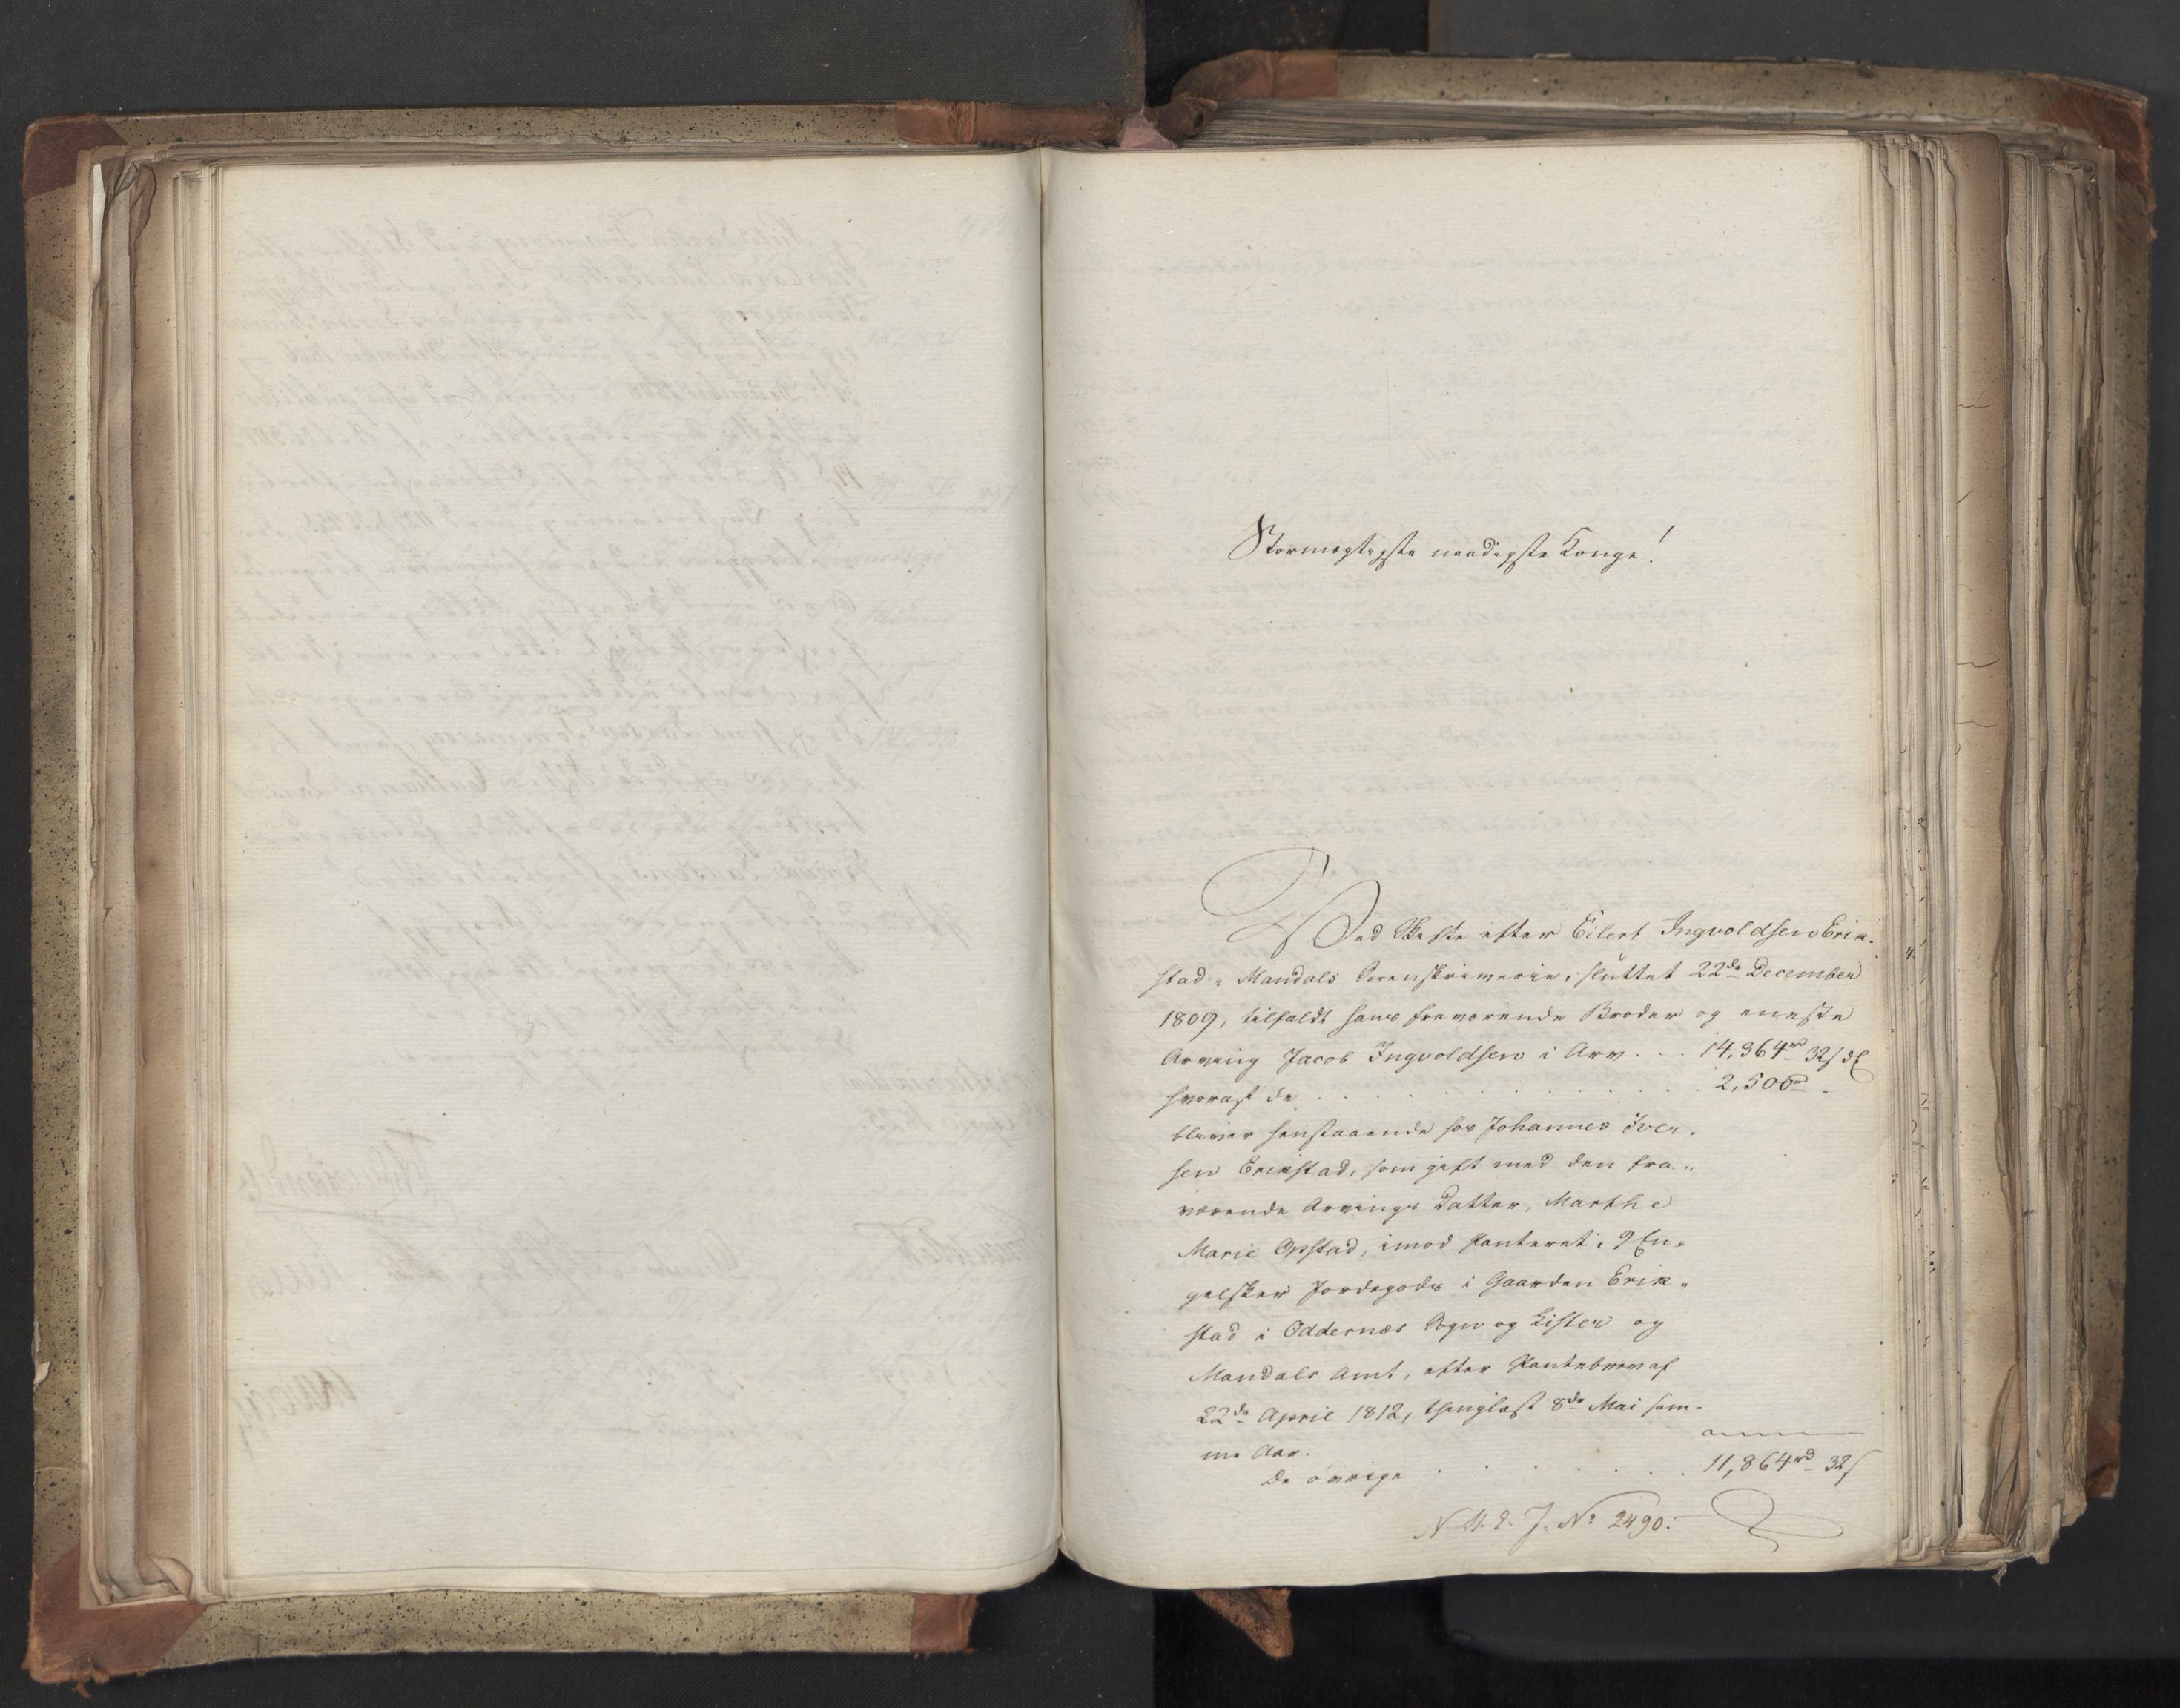 Stormægtigste naadigste Konge!
Ved Skifte efter Eilert Ingvoldsen Erik-
stad i Mandals Sorenskriverie, sluttet 22de December
1809, tilfaldt hans fraværende Broder og eneste
Arving Jacob Ingvoldsen i Arv . . . 14,364rd 32s
hvoraf de . . . . . . . . . . 2,500rd „
bliver henstaaende hos Johannes Iver-
sen Erikstad, som gift med den fra-
værende Arvings Datter, Marthe
Marie Opstad, imod Panteret i 9 En-
gelsker Jordegods i Gaarden Erik-
stad i Oddernæs Sogn og Lister og
Mandals Amt, efter Pantebrev af
22de April 1812, thinglæst 8de Mai sam-
me Aar.
De øvrige . . . . . . . 11,864rd 32s
J. No 2490.